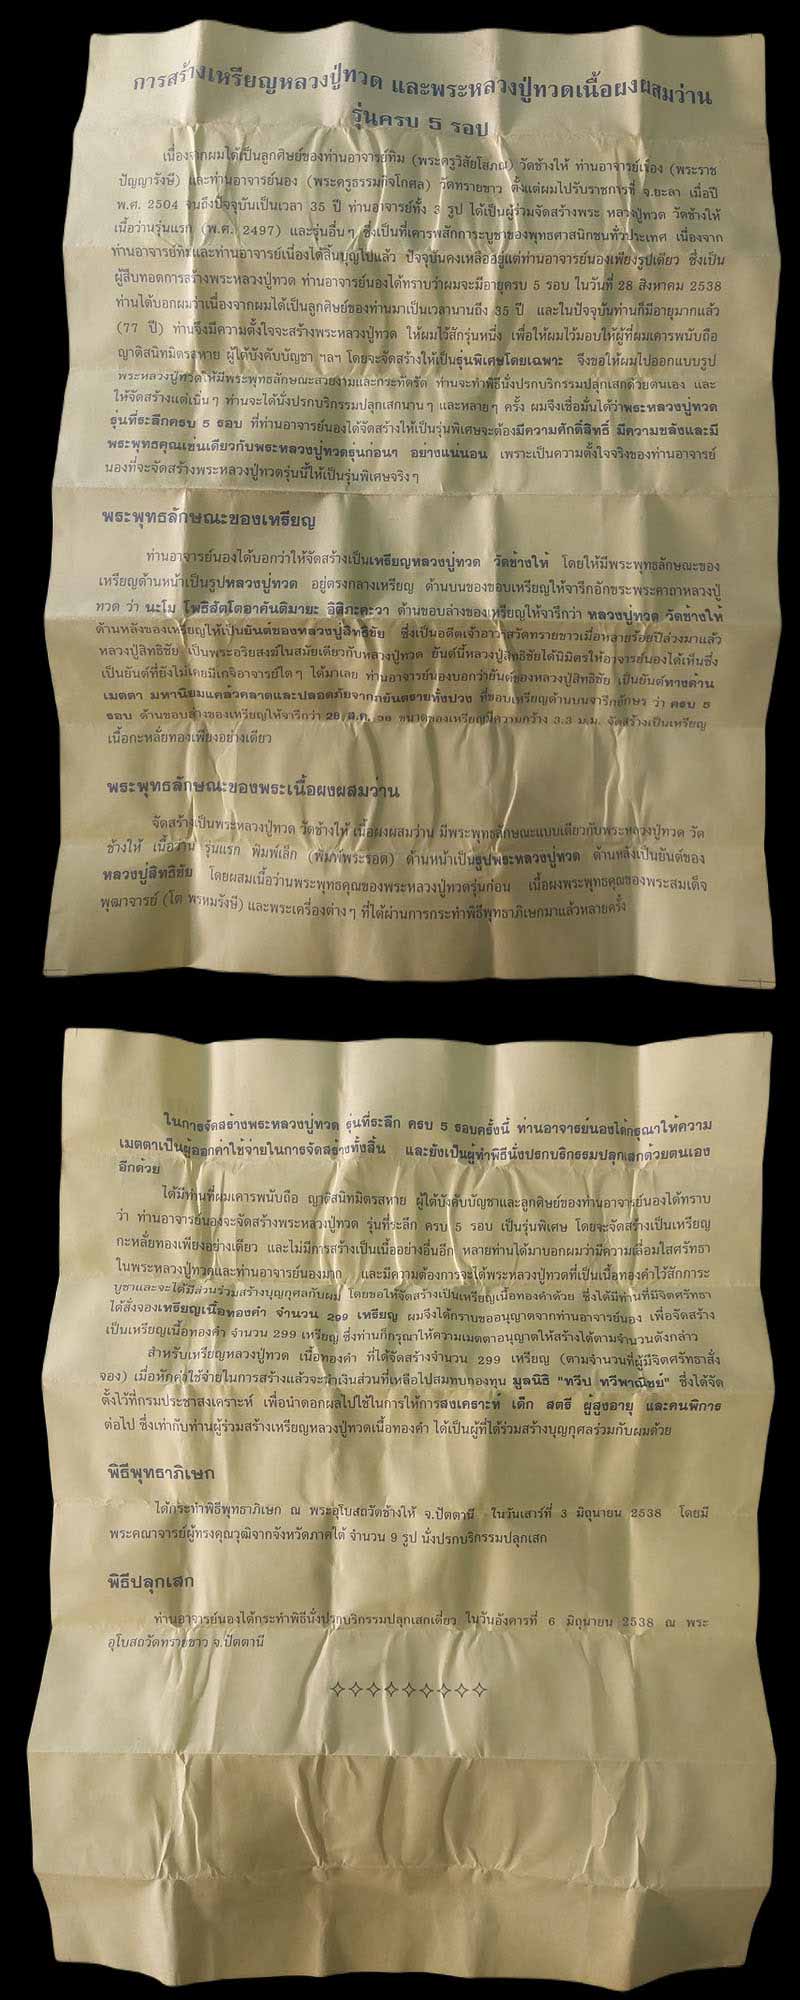 การสร้างเหรียญหลวงปู่ทวด และพระหลวงปู่ทวดเนื้อผงผสมว่าน
รุ่นครบ 5 รอบ
เนื่องจากผมได้เป็นลูกศิษย์ของท่านอาจารย์ทิม (พระครูวิสัยโสภณ) วัดช้างให้ ท่านอาจารย์เนื่อง (พระราช
ปัญญารังษี) และท่านอาจารย์นอง (พระครูธรรมกิจโกศล) วัดทรายขาว ตั้งแต่ผมไปรับราชการที่ จ.ยะลา เมื่อปี
พ.ศ. 2504 จนถึงปัจจุบันเป็นเวลา 35 ปี ท่านอาจารย์ทั้ง 3 รูป ได้เป็นผู้ร่วมจัดสร้างพระ หลวงปู่ทวด วัดช้างให้
เนื้อว่านรุ่นแรก (พ.ศ. 2497) และรุ่นอื่นๆ ซึ่งเป็นที่เคารพสักการะบูชาของพุทธศาสนิกชนทั่วประเทศ เนื่องจาก
ท่านอาจารย์ทิมและท่านอาจารย์เนื่องได้สิ้นบุญไปแล้ว ปัจจุบันคงเหลืออยู่แต่ท่านอาจารย์นองเพียงรูปเดียว ซึ่งเป็น
ผู้สืบทอดการสร้างพระหลวงปู่ทวด ท่านอาจารย์นองได้ทราบว่าผมจะมีอายุครบ 5 รอบ ในวันที่ 28 สิงหาคม 2538
ท่านได้บอกผมว่าเนื่องจากผมได้เป็นลูกศิษย์ของท่านมาเป็นเวลานานถึง 35 ปี และในปัจจุบันท่านก็มีอายุมากแล้ว
(77 ปี) ท่านจึงมีความตั้งใจจะสร้างพระหลวงปู่ทวด ให้ผมไว้สักรุ่นหนึ่ง เพื่อให้ผมไว้มอบให้ผู้ที่ผมเคารพนับถือ
ญาติสนิทมิตรสหาย ผู้ใต้บังคับบัญชา ฯลฯ โดยจะจัดสร้างให้เป็นรุ่นพิเศษโดยเฉพาะ จึงขอให้ผมไปออกแบบรูป
พระหลวงปู่ทวดให้มีพระพุทธลักษณะสวยงามและกระทัดรัด ท่านจะทำพิธีนั่งปรกบริกรรมปลุกเสกด้วยตนเอง และ
ให้จัดสร้างแต่เนิ่นๆ ท่านจะได้นั่งปรกบริกรรมปลุกเสกนานๆ และหลายๆ ครั้ง ผมจึงเชื่อมั่นได้ว่าพระหลวงปู่ทวด
รุ่นที่ระลึกครบ 5 รอบ ที่ท่านอาจารย์นองได้จัดสร้างให้เป็นรุ่นพิเศษจะต้องมีความศักดิ์สิทธิ์ มีความขลังและมี
พระพุทธคุณเช่นเดียวกับพระหลวงปู่ทวดรุ่นก่อนๆ อย่างแน่นอน เพราะเป็นความตั้งใจจริงของท่านอาจารย์
นองที่จะจัดสร้างพระหลวงปู่ทวดรุ่นนี้ให้เป็นรุ่นพิเศษจริงๆ
พระพุทธลักษณะของเหรียญ
ท่านอาจารย์นองได้บอกว่าให้จัดสร้างเป็นเหรียญหลวงปู่ทวด วัดช้างให้ โดยให้มีพระพุทธลักษณะของ
เหรียญด้านหน้าเป็นรูปหลวงปู่ทวด อยู่ตรงกลางเหรียญ ด้านบนของขอบเหรียญให้จารึกอักขระพระคาถาหลวงปู่
ทวด ว่า นะโม โพธิสัตโตอาคันติมายะ อิติภะคะวา ด้านขอบล่างของเหรียญให้จารึกว่า หลวงปู่ทวด วัดช้างให้
ด้านหลังของเหรียญให้เป็นยันต์ของหลวงปู่สิทธิชัย ซึ่งเป็นอดีตเจ้าอาวาสวัดทรายขาวเมื่อหลายร้อยปีล่วงมาแล้ว
หลวงปู่สิทธิชัย เป็นพระอริยสงฆ์ในสมัยเดียวกับหลวงปู่ทวด ยันต์นี้หลวงปู่สิทธิชัยได้นิมิตรให้อาจารย์นองได้เห็นซึ่ง
เป็นยันต์ที่ยังไม่เคยมีเกจิอาจารย์ใดๆ ได้มาเลย ท่านอาจารย์นองบอกว่ายันต์ของหลวงปู่สิทธิชัย เป็นยันต์ทางด้าน
เมตตา มหานิยมแคล้วคลาดและปลอดภัยจากภยันตรายทั้งปวง ที่ขอบเหรียญด้านบนจารึกอักษร ว่า ครบ 5
รอบ ด้านขอบล่างของเหรียญให้จารึกว่า 28 ส.ค. 38 ขนาดของเหรียญมีความกว้าง 3.3 ม.ม. จัดสร้างเป็นเหรียญ
เนื้อกะหลั่ยทองเพียงอย่างเดียว
พระพุทธลักษณะของพระเนื้อผงผสมว่าน
จัดสร้างเป็นพระหลวงปู่ทวด วัดช้างให้ เนื้อผงผสมว่าน มีพระพุทธลักษณะแบบเดียวกับพระหลวงปู่ทวด วัด
ช้างให้ เนื้อว่าน รุ่นแรก พิมพ์เล็ก (พิมพ์พระรอด) ด้านหน้าเป็นรูปพระหลวงปู่ทวด ด้านหลังเป็นยันต์ของ
หลวงปู่สิทธิชัย โดยผสมเนื้อว่านพระพุทธคุณของพระหลวงปู่ทวดรุ่นก่อน เนื้อผงพระพุทธคุณของพระสมเด็จ
พุฒาจารย์ (โต พรหมรังษี) และพระเครื่องต่างๆ ที่ได้ผ่านการกระทำพิธีพุทธาภิเษกมาแล้วหลายครั้ง
ในการจัดสร้างพระหลวงปู่ทวด รุ่นที่ระลึก ครบ 5 รอบครั้งนี้ ท่านอาจารย์นองได้กรุณาให้ความ
เมตตาเป็นผู้ออกค่าใช้จ่ายในการจัดสร้างทั้งสิ้น และยังเป็นผู้ทำพิธีนั่งปรกบริกรรมปลุกเสกด้วยตนเอง
อีกด้วย
ได้มีท่านที่ผมเคารพนับถือ ญาติสนิทมิตรสหาย ผู้ใต้บังคับบัญชาและลูกศิษย์ของท่านอาจารย์นองได้ทราบ
ว่า ท่านอาจารย์นองจะจัดสร้างพระหลวงปู่ทวด รุ่นที่ระลึก ครบ 5 รอบ เป็นรุ่นพิเศษ โดยจะจัดสร้างเป็นเหรียญ
กะหลั่ยทองเพียงอย่างเดียว และไม่มีการสร้างเป็นเนื้ออย่างอื่นอีก หลายท่านได้มาบอกผมว่ามีความเลื่อมใสศรัทธา
ในพระหลวงปู่ทวดและท่านอาจารย์นองมาก และมีความต้องการจะได้พระหลวงปู่ทวดที่เป็นเนื้อทองคำไว้สักการะ
บูชาและจะได้มีส่วนร่วมสร้างบุญกุศลกับผม โดยขอให้จัดสร้างเป็นเหรียญเนื้อทองคำด้วย ซึ่งได้มีท่านที่มีจิตศรัทธา
ได้สั่งจองเหรียญเนื้อทองคำ จำนวน 299 เหรียญ ผมจึงได้กราบขออนุญาตจากท่านอาจารย์นอง เพื่อจัดสร้าง
เป็นเหรียญเนื้อทองคำ จำนวน 299 เหรียญ ซึ่งท่านก็กรุณาให้ความเมตตาอนุญาตให้สร้างได้ตามจำนวนดังกล่าว
สำหรับเหรียญหลวงปู่ทวด เนื้อทองคำ ที่ได้จัดสร้างจำนวน 299 เหรียญ (ตามจำนวนที่ผู้มีจิตศรัทธาสั่ง
จอง) เมื่อหักค่าใช้จ่ายในการสร้างแล้วจะนำเงินส่วนที่เหลือไปสมทบกองทุน มูลนิธิ "ทวีป ทวีพาณิชย์" ซึ่งได้จัด
ตั้งไว้ที่กรมประชาสงเคราะห์ เพื่อนำดอกผลไปใช้ในการให้การสงเคราะห์ เด็ก สตรี ผู้สูงอายุ และคนพิการ
ต่อไป ซึ่งเท่ากับท่านผู้ร่วมสร้างเหรียญหลวงปู่ทวดเนื้อทองคำ ได้เป็นผู้ที่ได้ร่วมสร้างบุญกุศลร่วมกับผมด้วย
พิธีพุทธาภิเษก
ได้กระทำพิธีพุทธาภิเษก ณ พระอุโบสถวัดช้างให้ จ.ปัตตานี ในวันเสาร์ที่ 3 มิถุนายน 2538 โดยมี
พระคณาจารย์ผู้ทรงคุณวุฒิจากจังหวัดภาคใต้ จำนวน 9 รูป นั่งปรกบริกรรมปลุกเสก
พิธีปลุกเสก
ท่านอาจารย์นองได้กระทำพิธีนั่งปรกบริกรรมปลุกเสกเดี่ยว ในวันอังคารที่ 6 มิถุนายน 2538 ณ พระ
อุโบสถวัดทรายขาว จ.ปัตตานี